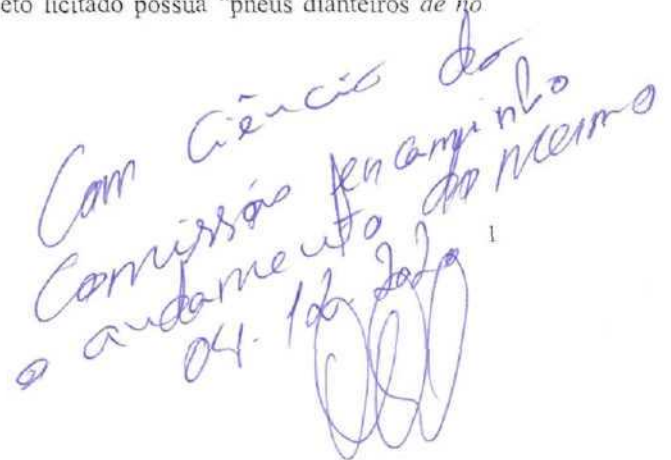 eto licitado possua "pneus dianteiros de no
Com Ciência da
Comissão encaminho
o andamento do mesmo
1
04.12.2020